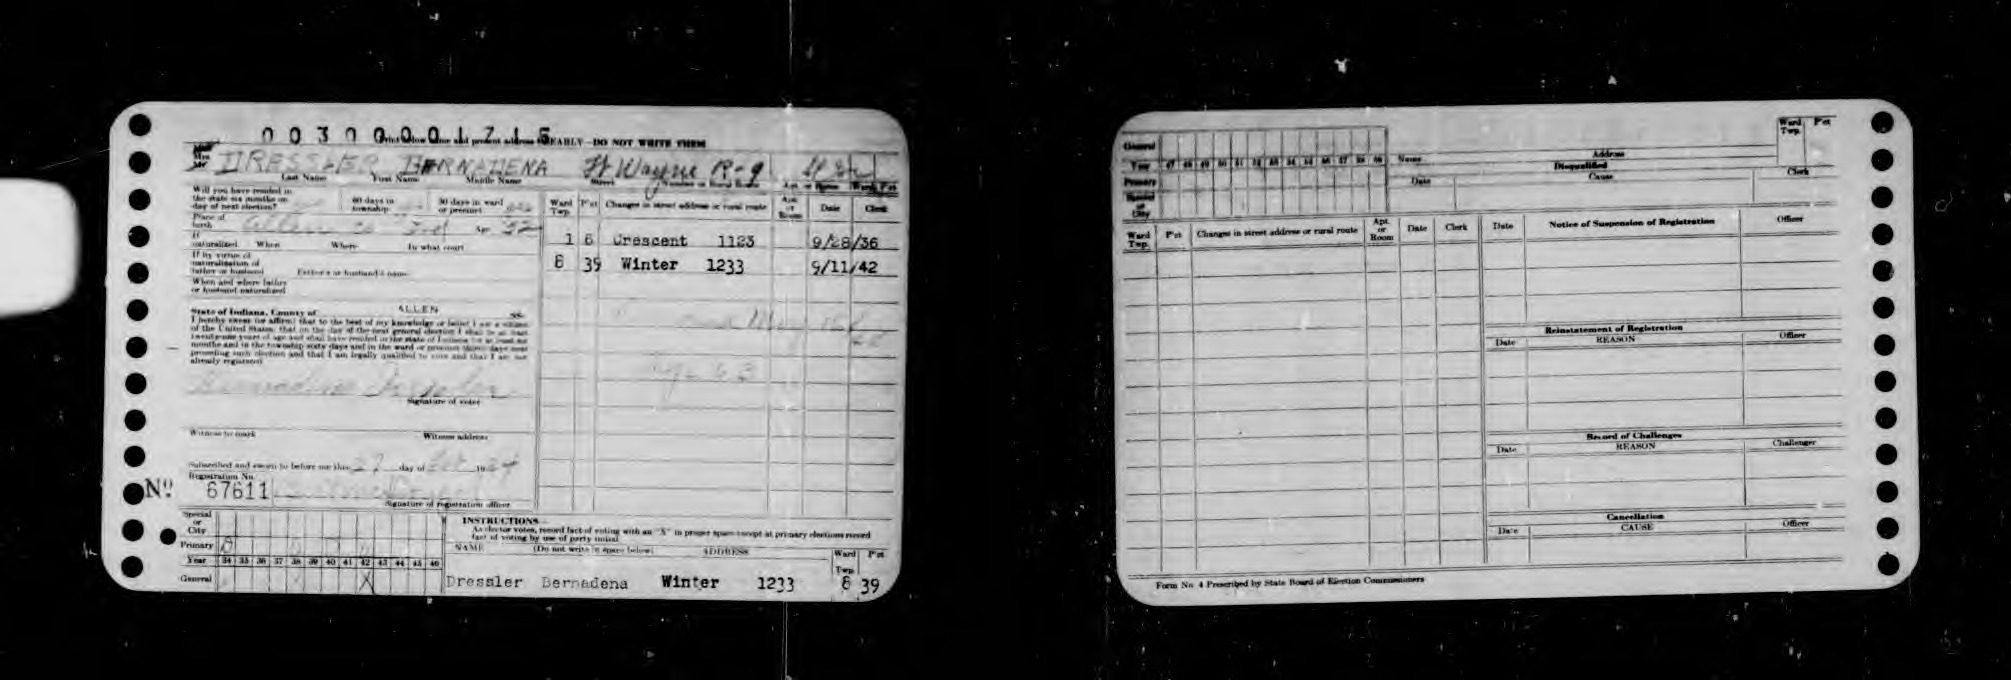 00370001715
Print below name and present address CLEARLY—DO NOT WRITE THEM
Miss
Mrs
Mr
DRESSLER BERNADENA Ft Wayne R-9
Last Name First Name Middle Name Street Number or Rural Route Apt. or Room Ward Pct
Will you have resided in
the state six months on
day of next election?
60 days in
township
30 days in ward
or precinct
Place of
birth Allen Co Ind Age 32
If
naturalized When Where In what court
If by virtue of
naturalization of
father or husband Father's or husband's name
When and where father
or husband naturalized
State of Indiana, County of ALLEN ss.
I hereby swear (or affirm) that to the best of my knowledge or belief I am a citizen
of the United States; that on the day of the next general election I shall be at least
twenty-one years of age and shall have resided in the state of Indiana for at least six
months and in the township sixty days and in the ward or precinct thirty days next
preceding such election and that I am legally qualified to vote and that I am not
already registered
Bernadena Dressler
Signature of voter
Witness to mark Witness address
Subscribed and sworn to before me this 27 day of 19
Registration No.
Nº 67611
Signature of registration officer
Ward Twp. P'ct Changes in street address or rural route Apt. or Room Date Clerk
1 6 Crescent 1123 9/28/36
8 39 Winter 1233 9/11/42
Special
or
City
Primary
Year 34 35 36 37 38 39 40 41 42 43 44 45 46
General X
INSTRUCTIONS—
As elector votes, record fact of voting with an "X" in proper space except at primary elections record
fact of voting by use of party initial
NAME (Do not write in space below) ADDRESS Ward Twp. P'ct
Dressler Bernadena Winter 1233 8 39
General
Year 47 48 49 50 51 52 53 54 55 56 57 58 59
Primary
Special
or
City
Name Address Ward Twp. P'ct
Disqualified
Date Cause Clerk
Ward Twp. P'ct Changes in street address or rural route Apt. or Room Date Clerk
Date Notice of Suspension of Registration Officer
Reinstatement of Registration
Date REASON Officer
Record of Challenges
Date REASON Challenger
Cancellation
Date CAUSE Officer
Form No. 4 Prescribed by State Board of Election Commissioners